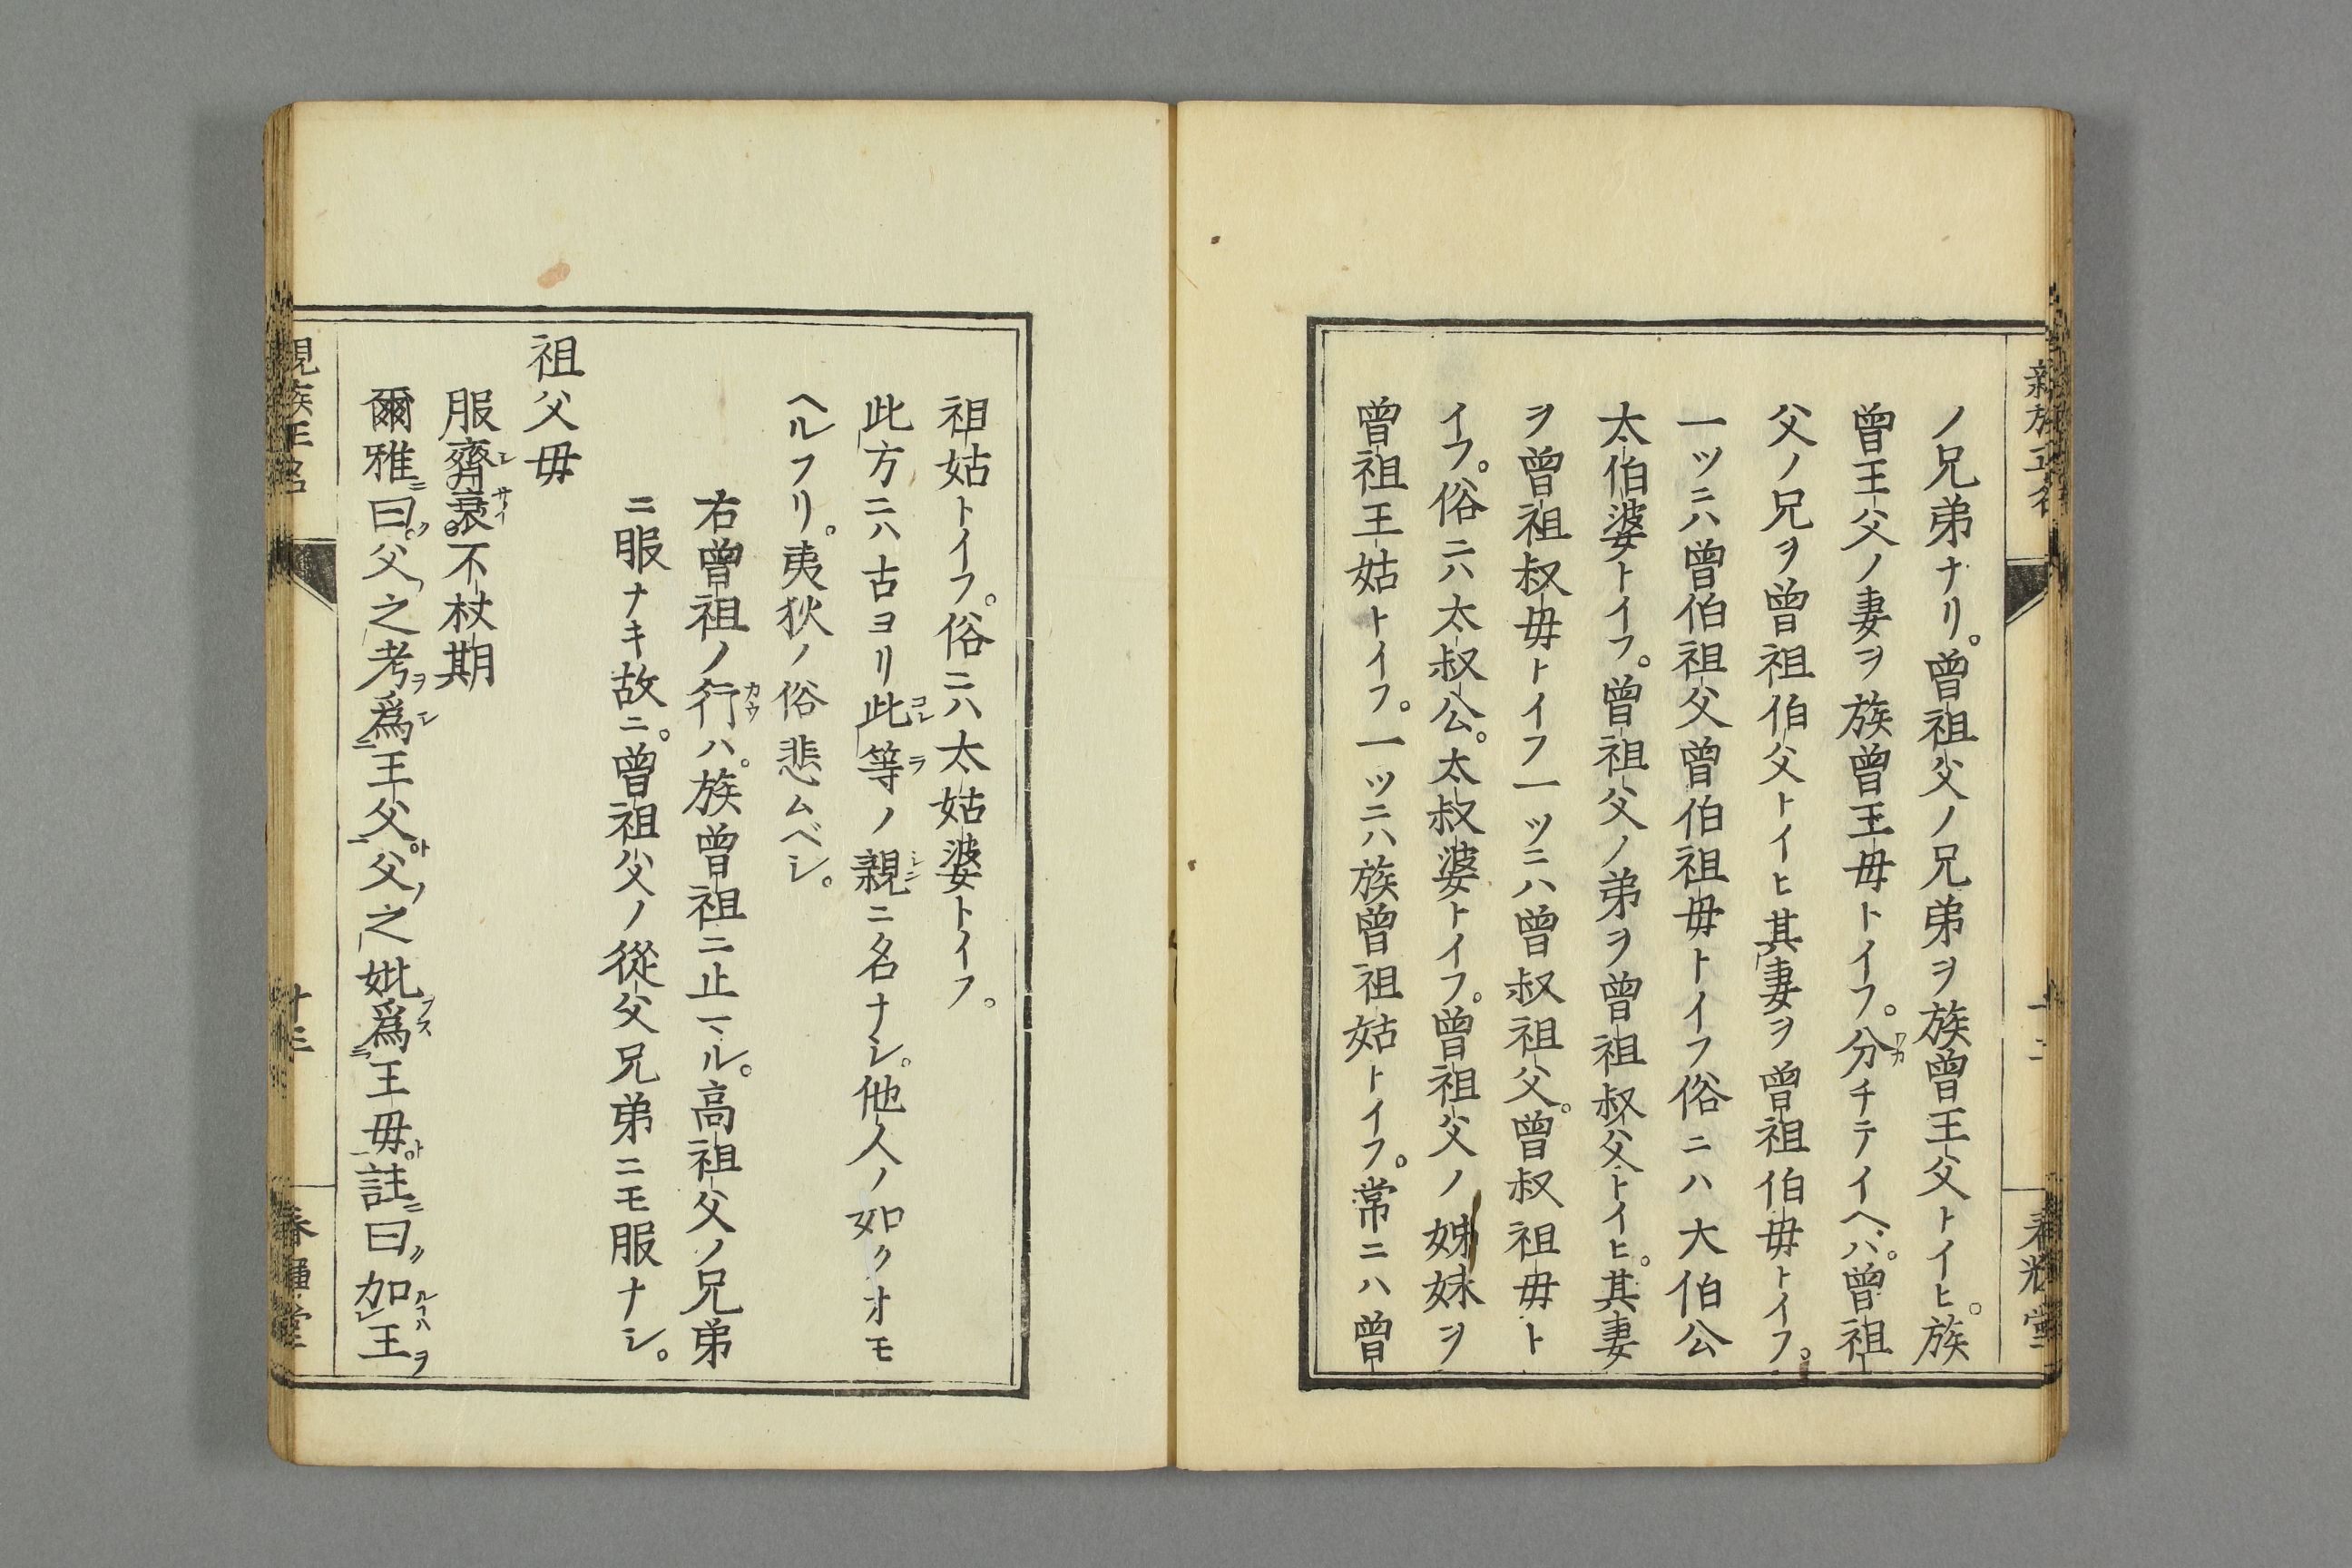 ノ兄弟ナリ。曾祖父ノ兄弟ヲ族曾王父トイヒ。族
曾王父ノ妻ヲ族曾王母トイフ。分チテイヘバ。曾祖
父ノ兄ヲ曾祖伯父トイヒ其妻ヲ曾祖伯母トイフ。
一ツニハ曾伯祖父曾伯祖母トイフ俗ニハ大伯公
太伯婆トイフ。曾祖父ノ弟ヲ曾祖叔父トイヒ。其妻
ヲ曾祖叔母トイフ一ツニハ曾叔祖父。曾叔祖母ト
イフ。俗ニハ太叔公。太叔婆トイフ。曾祖父ノ姊妹ヲ
曾祖王姑トイフ。一ツニハ族曾祖姑トイフ。常ニハ曾
祖姑トイフ。俗ニハ太姑婆トイフ。
此方ニハ古ヨリ此等ノ親ニ名ナシ。他人ノ如クオモ
ヘルフリ。夷狄ノ俗悲ムベシ。
右曾祖ノ行ハ。族曾祖ニ止マル。高祖父ノ兄弟
ニ服ナキ故ニ。曾祖父ノ從父兄弟ニモ服ナシ。
祖父母
服齊衰。不杖期
爾雅曰。父之考爲王父。父之妣爲王母。註曰加王
親族正名
十三
春暉堂